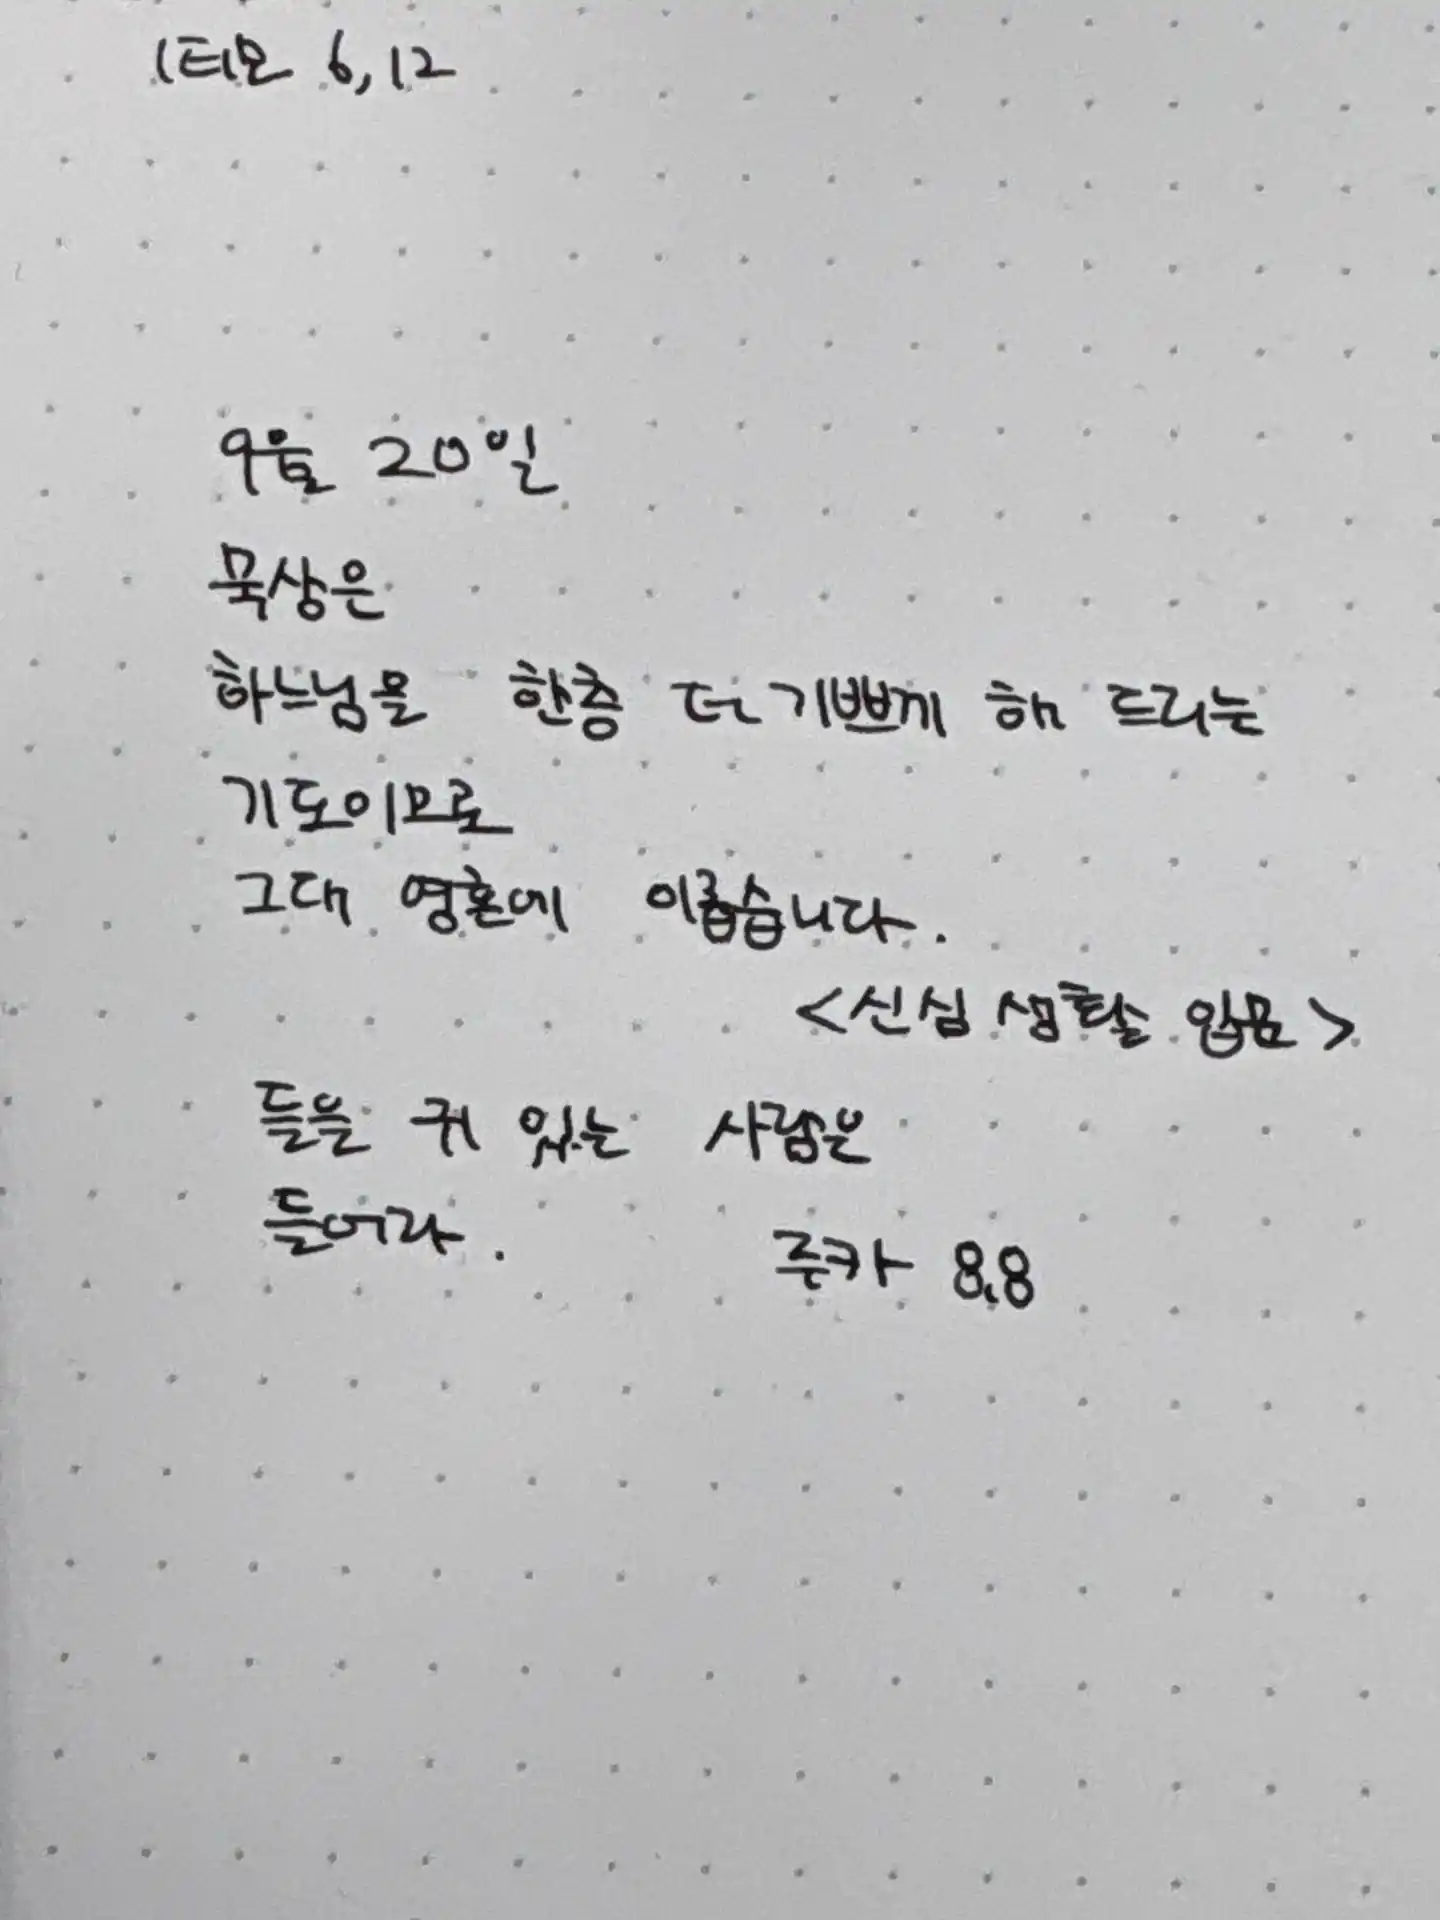 1티모 6,12
9월 20일
묵상은
하느님을 한층 더 기쁘게 해 드리는
기도이므로
그대 영혼에 이롭습니다.
<신심 생활 입문>
들을 귀 있는 사람은
들어라.
루카 8,8